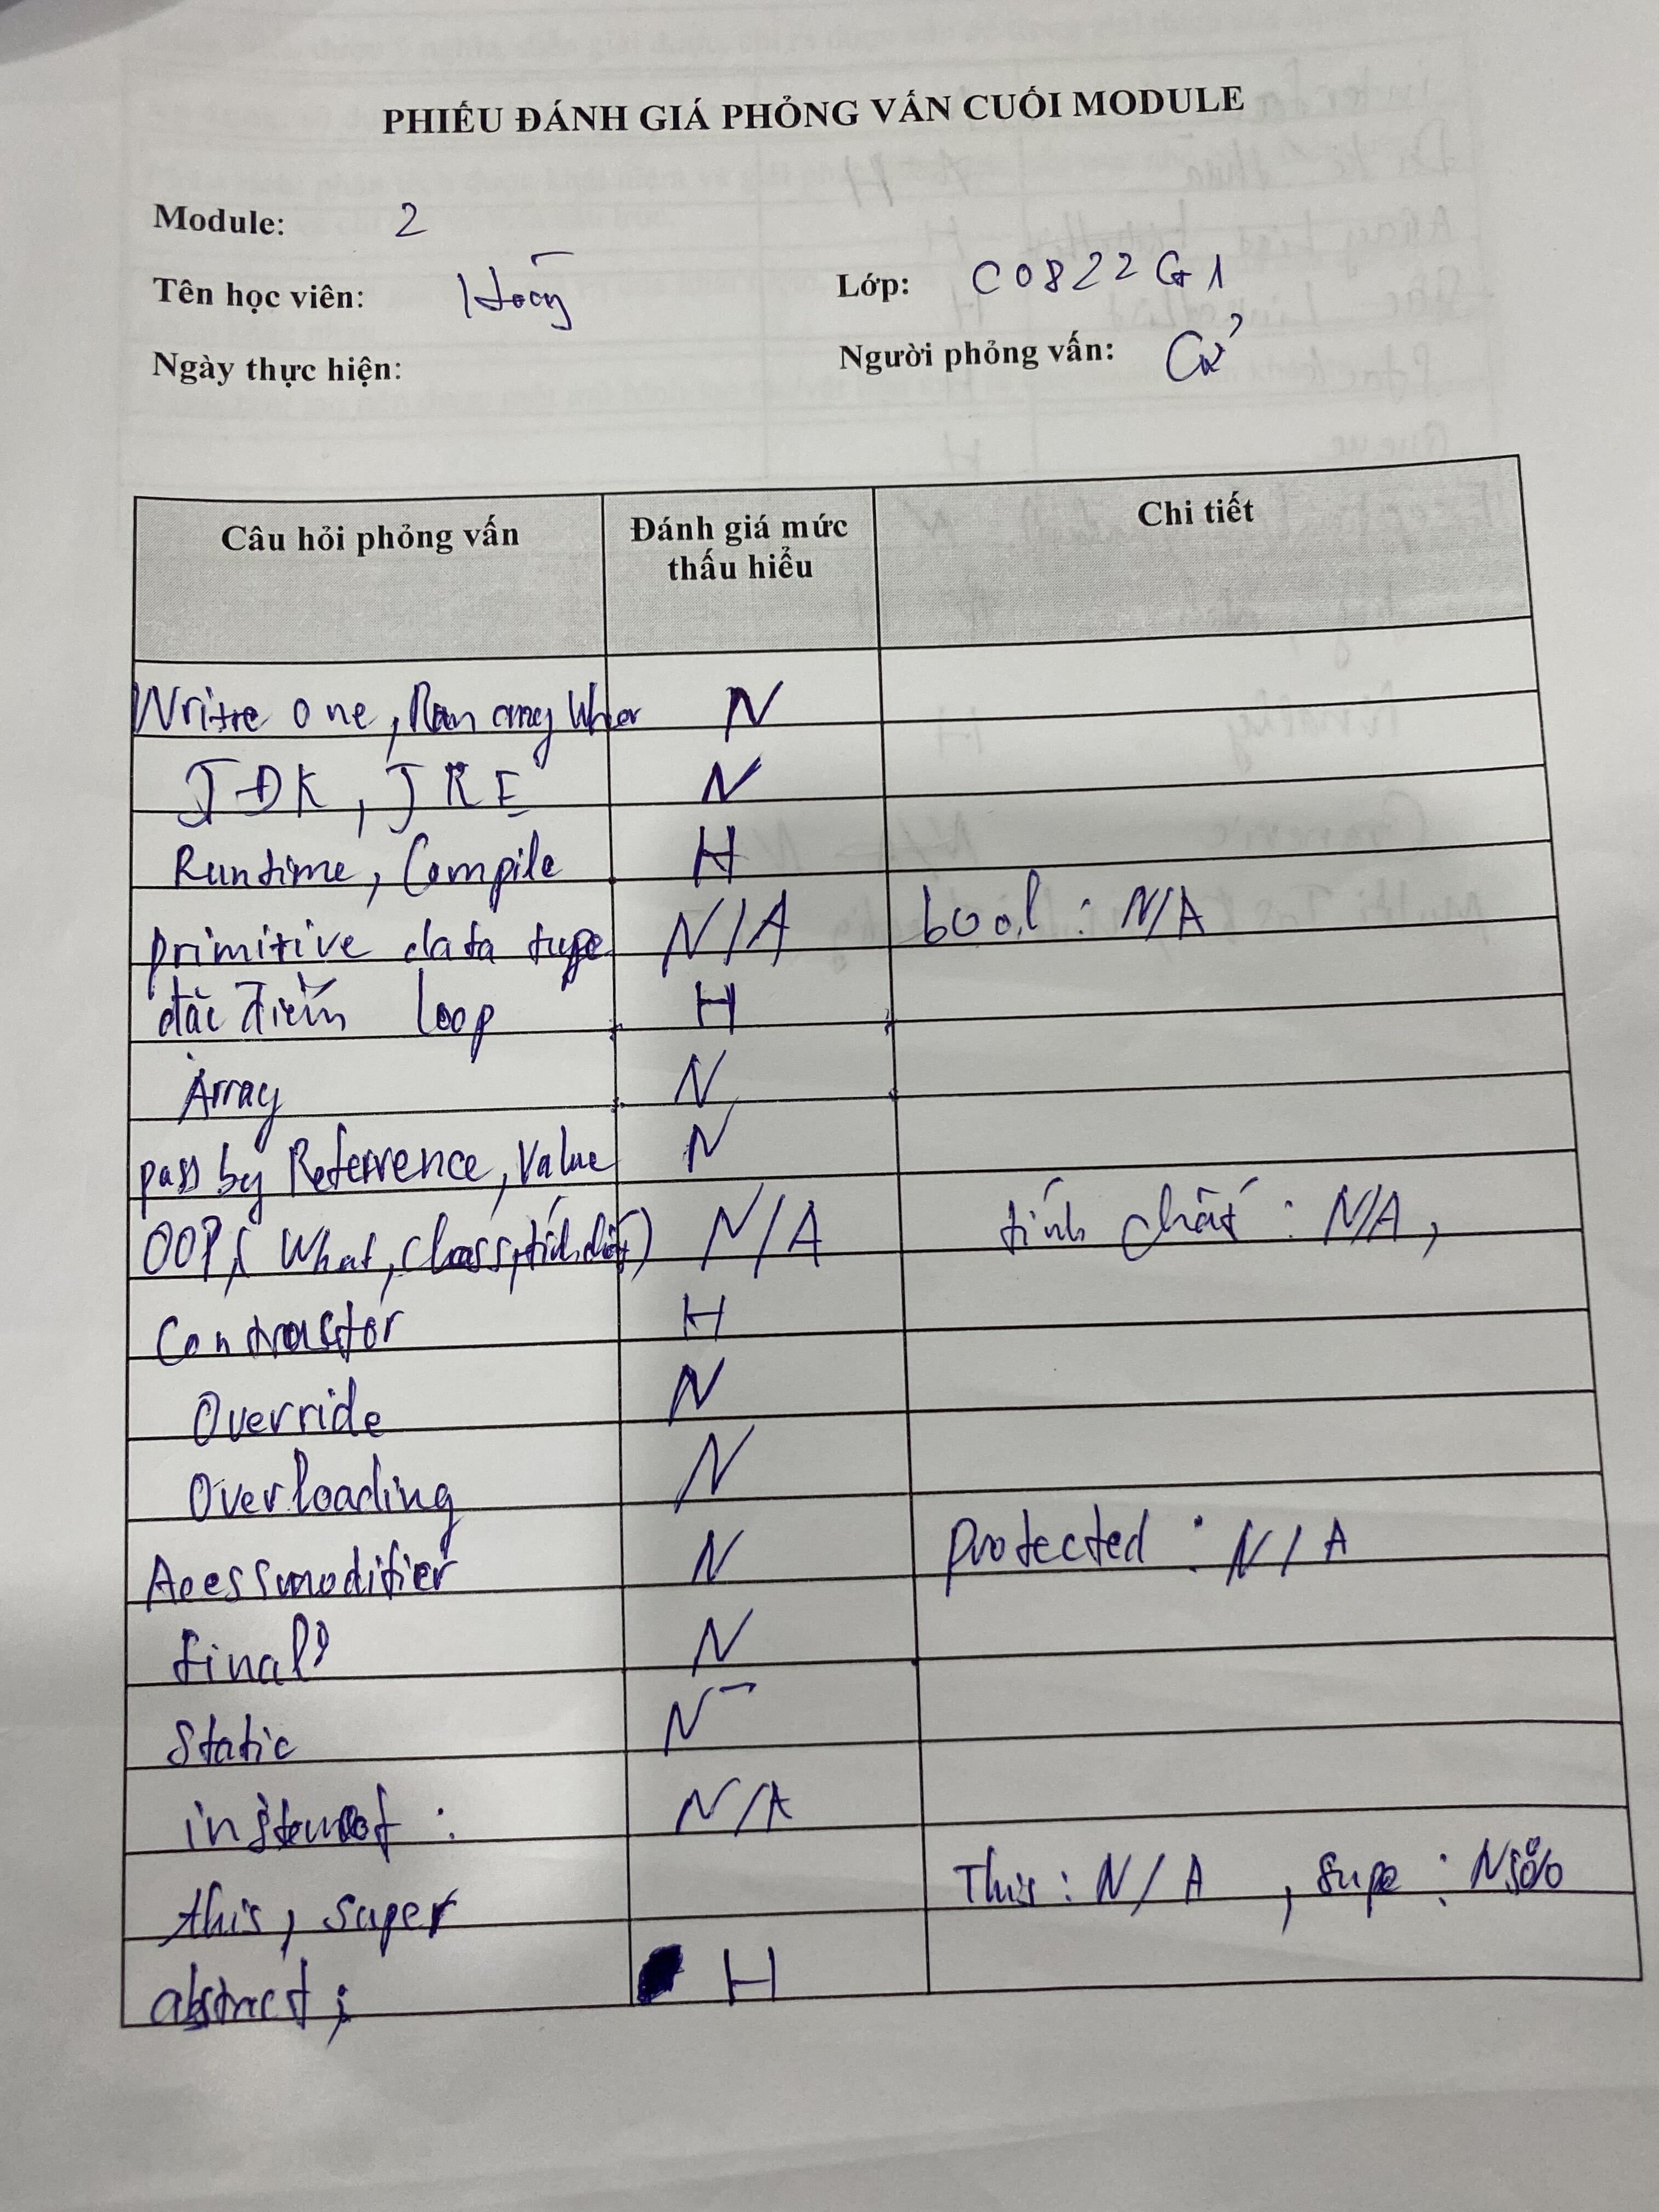 PHIẾU ĐÁNH GIÁ PHỎNG VẤN CUỐI MODULE
Module: 2
Tên học viên: Lớp: C0822G1
Ngày thực hiện: Người phỏng vấn: Cừ
Câu hỏi phỏng vấn Đánh giá mức thấu hiểu Chi tiết
Write one, Run any Wher N
JDK, JRE N
Runtime, Compile H
primitive data type N/A bool : N/A
đặc điểm loop H
Array N
pass by Reference, Value N
OOP ( What, class, N/A tính chất : N/A,
Contructor H
Override N
Overloading N
Acessmodifier N protected : N/A
final N
Static N-
N/A
this, super This : N/A , supe : N50%
abstract ; H